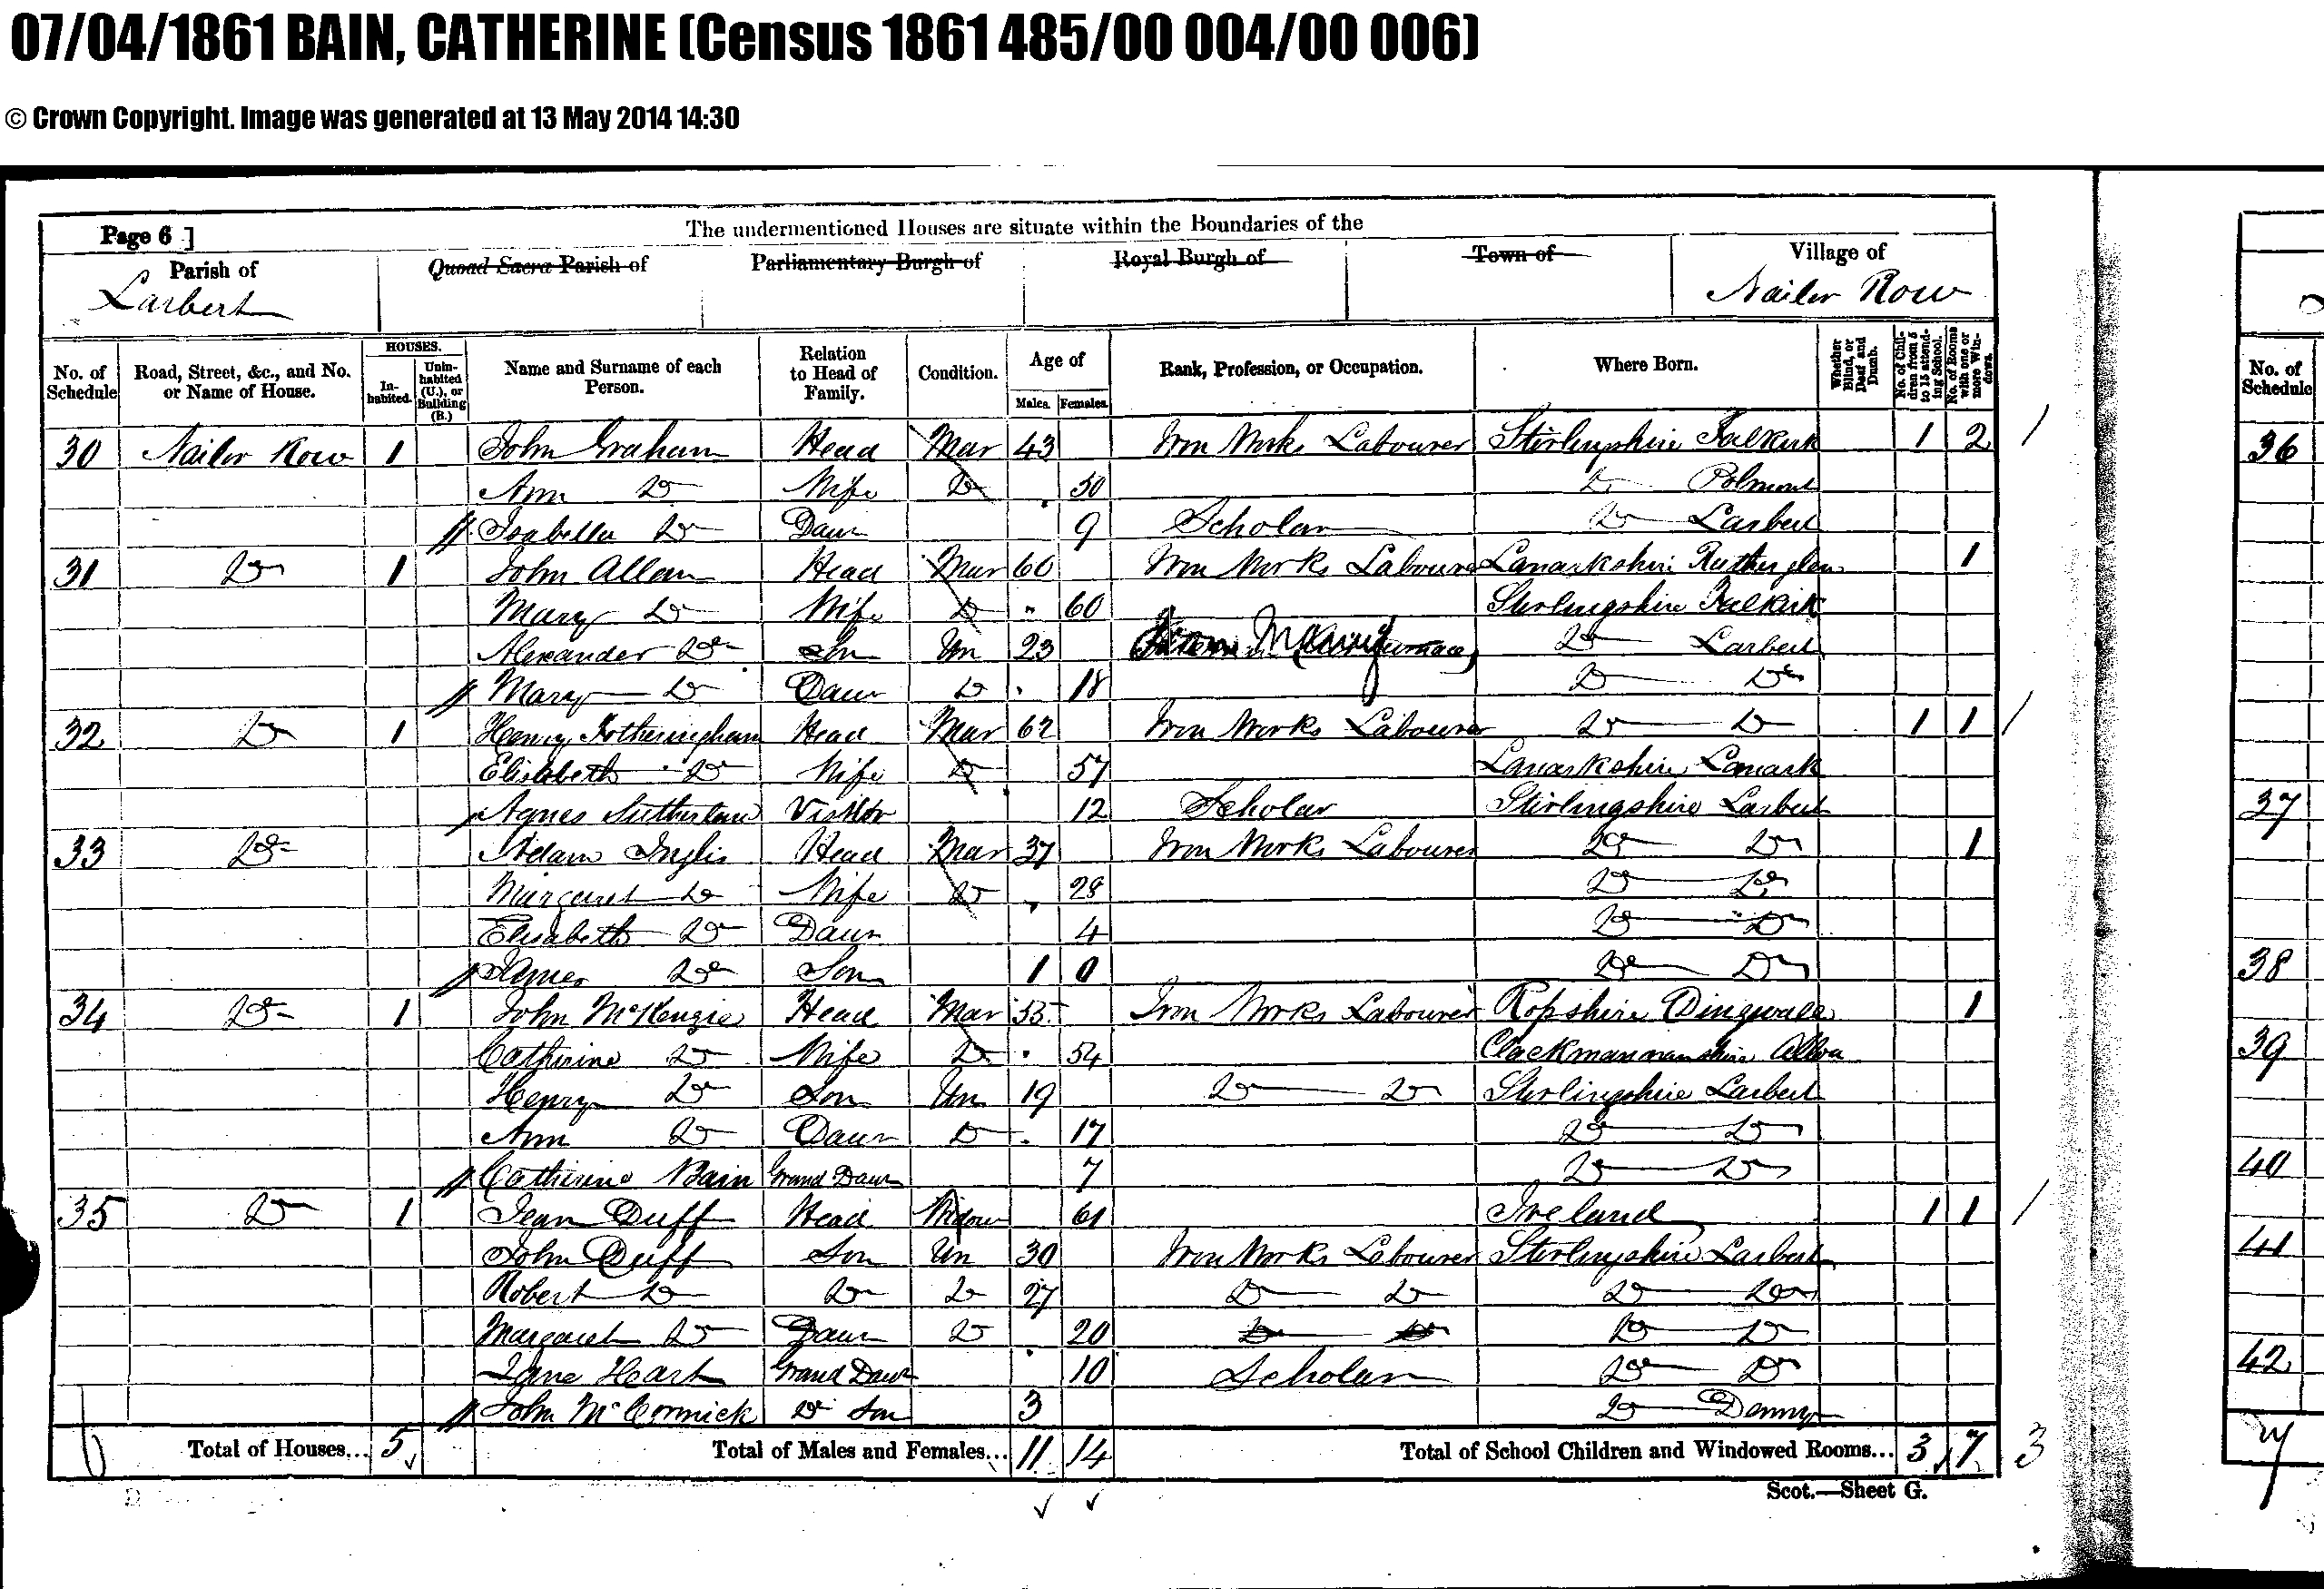 07/04/1861 BAIN, CATHERINE (Census 1861 485/00 004/00 006)
© Crown Copyright. Image was generated at 13 May 2014 14:30
The undermentioned Houses are situate within the Boundaries of the
Page 6 ]
Parish of Larbert Quoad Sacra Parish of Parliamentary Burgh of Royal Burgh of Town of Village of Nailer Row
No. of Schedule Road, Street, &c., and No. or Name of House. HOUSES. Inhabited. Uninhabited (U.), or Building (B.) Name and Surname of each Person. Relation to Head of Family. Condition. Age of Males. Females. Rank, Profession, or Occupation. Where Born. Whether Blind, or Deaf and Dumb. No. of Children from 5 to 15 attending School. No. of Rooms with one or more Windows. No. of Schedule
30 Nailer Row 1 John Graham Head Mar 43 Iron Works Labourer Stirlingshire Falkirk 1 2 / 36
Ann Do Wife Do 50 Do Polmont
// Isabella Do Daur 9 Scholar Do Larbert
31 Do 1 John Allan Head Mar 60 Iron Works Labourer Lanarkshire Rutherglen 1
Mary Do Wife Do 60 Stirlingshire Falkirk
Alexander Do Son Un 23 Do Larbert
// Mary Do Daur Do 18 Do Do
32 Do 1 Henry Fotheringham Head Mar 62 Iron Works Labourer Do Do 1 1 /
Elisabeth Do Wife Do 57 Lanarkshire Lanark
Agnes Sutherland Visitor 12 Scholar Stirlingshire Larbert 37
33 Do Adam Inglis Head Mar 37 Iron Works Labourer Do Do 1
Margaret Do Wife Do 28 Do Do
Elisabeth Do Daur 4 Do Do
// James Do Son 10 Do Do 38
34 Do 1 John McKenzie Head Mar 55 Iron Works Labourer Rosshire Dingwall 1
Catherine Do Wife Do 54 Clackmannanshire Alloa 39
Henry Do Son Un 19 Do Do Stirlingshire Larbert
Ann Do Daur Do 17 Do Do
// Catherine Bain Grand Daur 7 Do Do 40
35 Do 1 Jean Duff Head Widow 61 Ireland 1 1 /
John Duff Son Un 30 Iron Works Labourer Stirlingshire Larbert 41
Robert Do Do Do 27 Do Do Do Do
Margaret Do Daur Do 20 Do Do Do Do
Jane Heart Grand Daur 10 Scholar Do Do 42
// John McCormick Do Son 3 Do Denny
Total of Houses... 5 Total of Males and Females... 11 14 Total of School Children and Windowed Rooms... 3 7 3
Scot.—Sheet G.